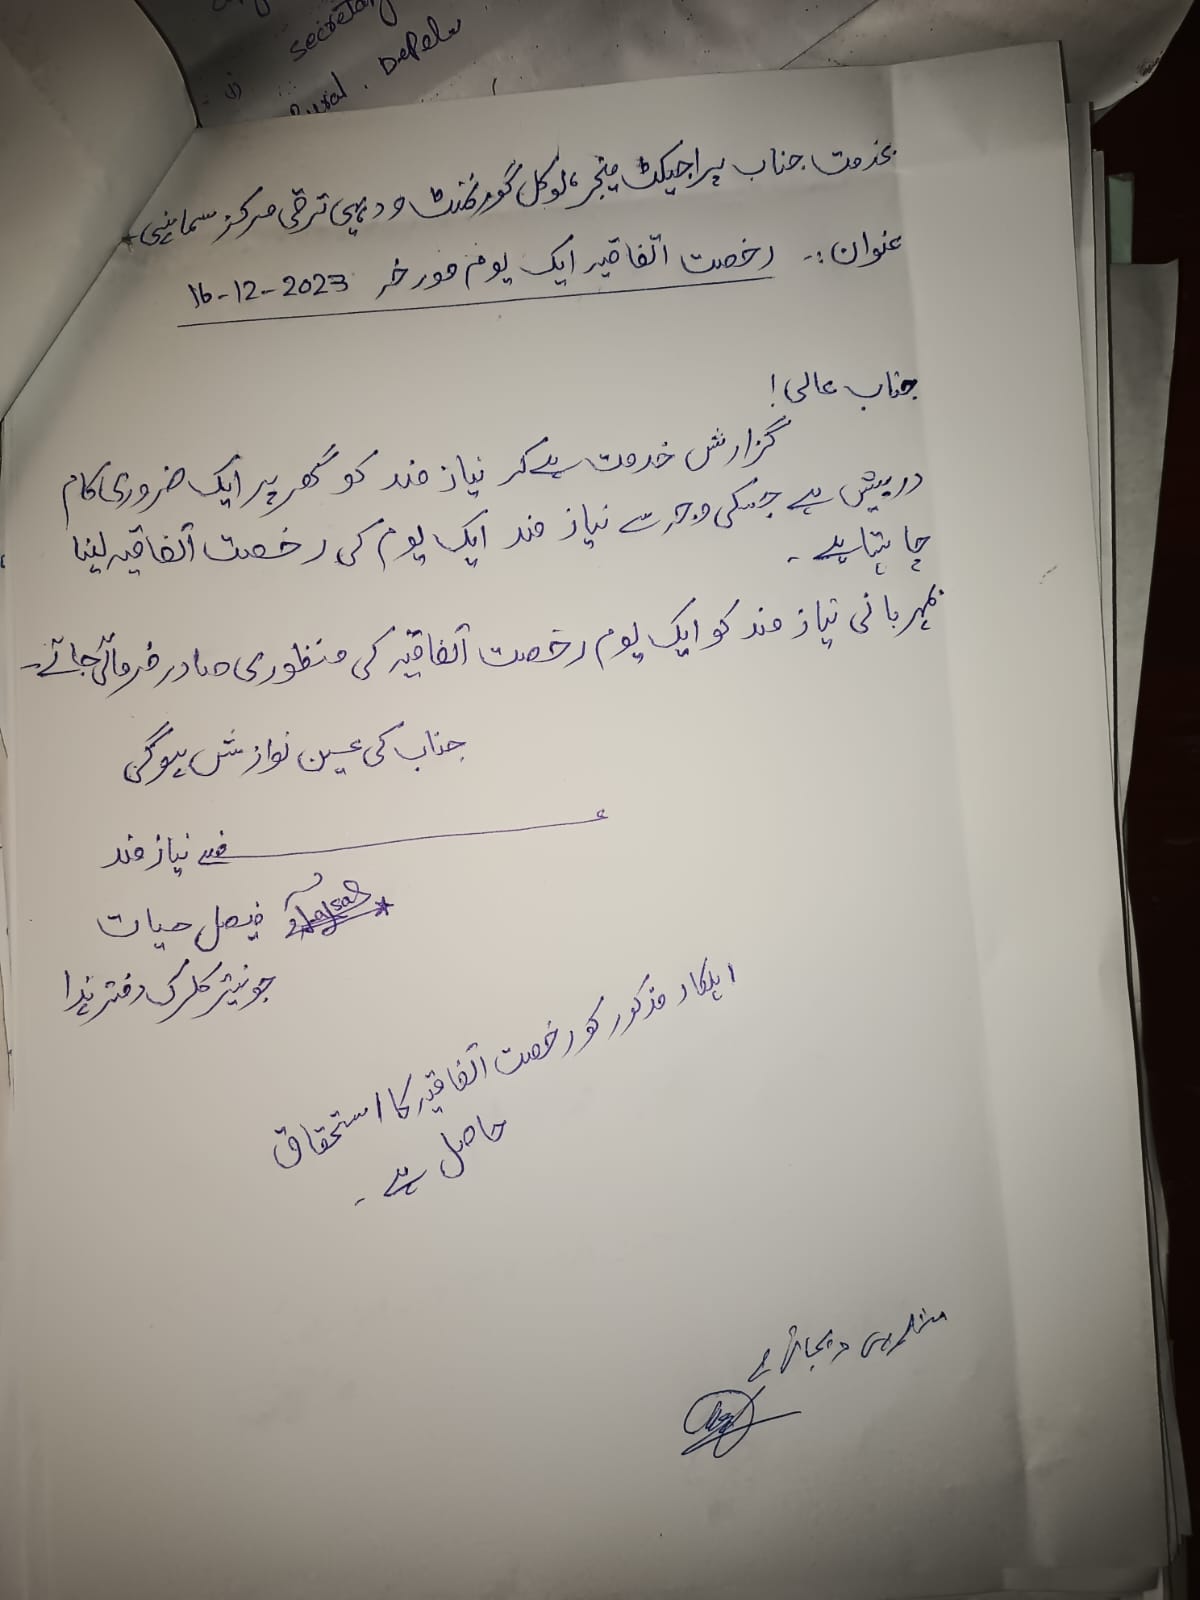 secretary
Rural. Depel
بخدمت جناب پراجیکٹ مینجر، لوکل گورنمنٹ و دیہی ترقی مرکز سماہنی۔
عنوان :۔ رخصت اتفاقیہ ایک یوم مورخہ 16-12-2023
جناب عالی!
گزارش خدمت ہے کہ نیاز مند کو گھر پر ایک ضروری کام
درپیش ہے جسکی وجہ سے نیاز مند ایک یوم کی رخصت اتفاقیہ لینا
چاہتا ہے۔
بمہربانی نیاز مند کو ایک یوم رخصت اتفاقیہ کی منظوری صادر فرمائی جائے۔
جناب کی عین نوازش ہوگی
نیاز مند
فیصل حیات
جونیئر کلرک دفتر ہذا
اہلکار مذکور کو رخصت اتفاقیہ کا استحقاق
حاصل ہے۔
منظوری دیجاتی ہے